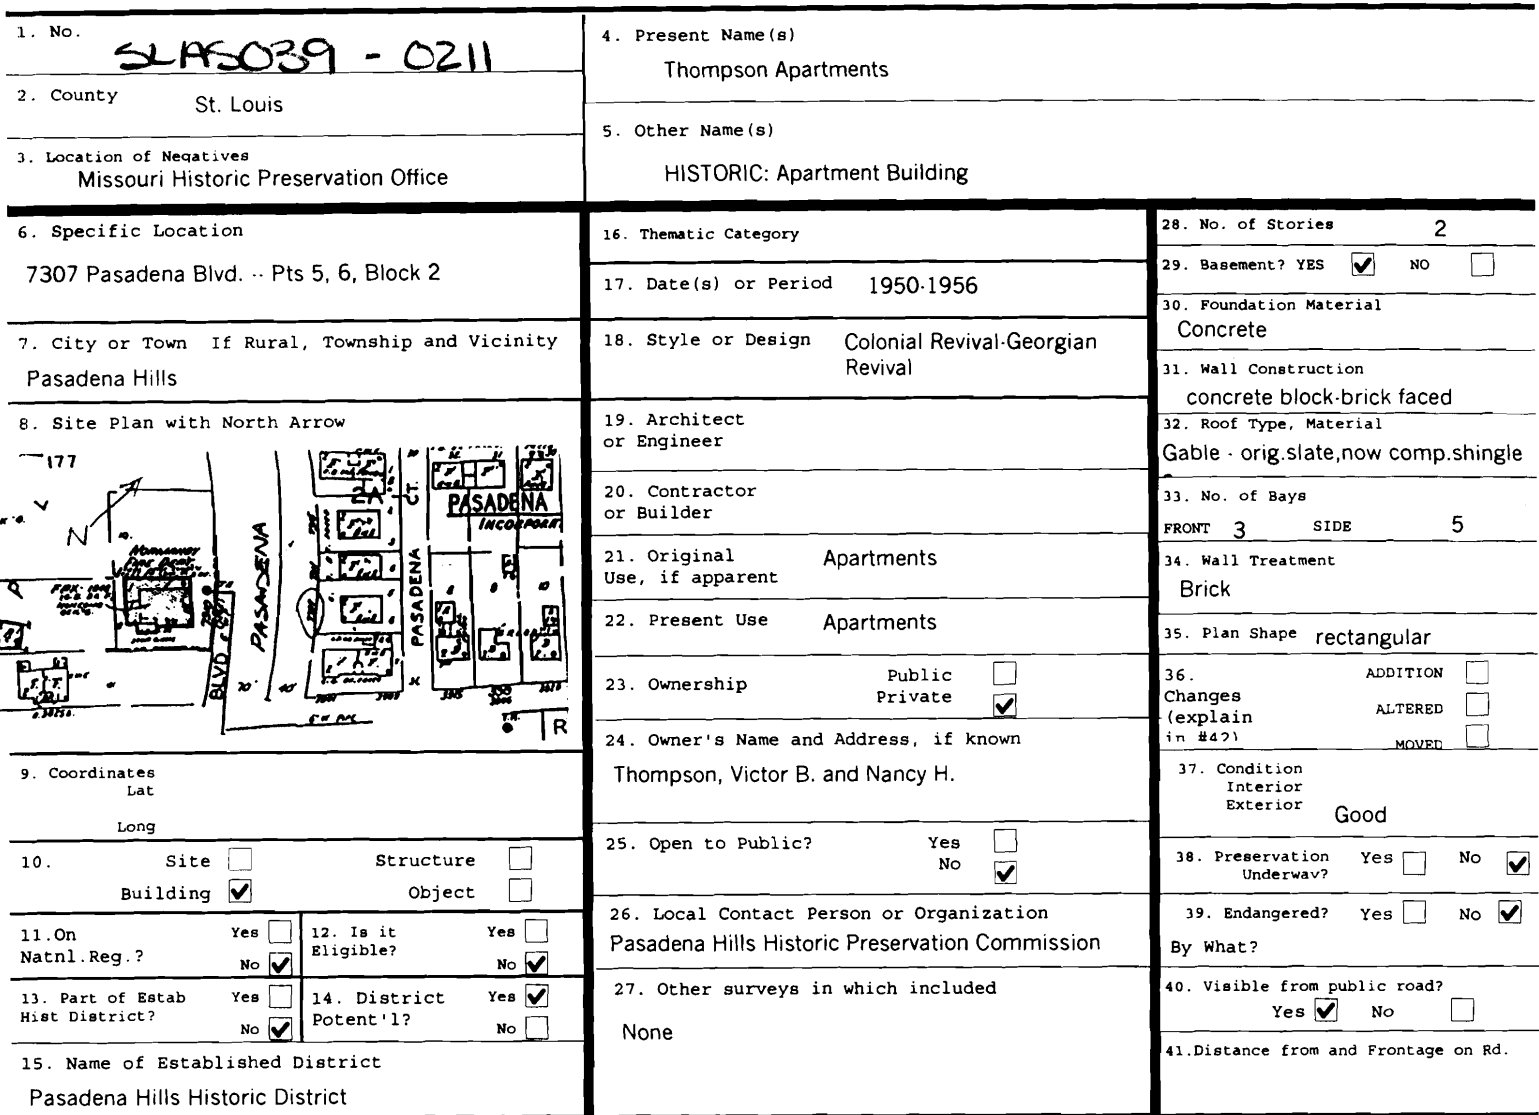 1. No.
SLAS039 - 0211
2. County
St. Louis
3. Location of Negatives
Missouri Historic Preservation Office
4. Present Name(s)
Thompson Apartments
5. Other Name(s)
HISTORIC: Apartment Building
6. Specific Location
7307 Pasadena Blvd. -- Pts 5, 6, Block 2
7. City or Town If Rural, Township and Vicinity
Pasadena Hills
8. Site Plan with North Arrow
177
N
PASADENA
BLVD
2A
CT.
PASADENA
PASADENA
INCORPORAT
R
9. Coordinates
Lat
Long
10. Site Structure
Building ✔ Object
11.On Natnl.Reg.? Yes
No ✔
12. Is it Eligible? Yes
No ✔
13. Part of Estab Hist District? Yes
No ✔
14. District Potent'l? Yes ✔
No
15. Name of Established District
Pasadena Hills Historic District
16. Thematic Category
17. Date(s) or Period 1950-1956
18. Style or Design Colonial Revival-Georgian
Revival
19. Architect
or Engineer
20. Contractor
or Builder
21. Original Apartments
Use, if apparent
22. Present Use Apartments
23. Ownership Public
Private ✔
24. Owner's Name and Address, if known
Thompson, Victor B. and Nancy H.
25. Open to Public? Yes
No ✔
26. Local Contact Person or Organization
Pasadena Hills Historic Preservation Commission
27. Other surveys in which included
None
28. No. of Stories 2
29. Basement? YES ✔ NO
30. Foundation Material
Concrete
31. Wall Construction
concrete block-brick faced
32. Roof Type, Material
Gable - orig.slate,now comp.shingle
33. No. of Bays
FRONT 3 SIDE 5
34. Wall Treatment
Brick
35. Plan Shape rectangular
36. ADDITION
Changes
(explain ALTERED
in #42) MOVED
37. Condition
Interior
Exterior Good
38. Preservation Yes No ✔
Underway?
39. Endangered? Yes No ✔
By What?
40. Visible from public road?
Yes ✔ No
41.Distance from and Frontage on Rd.